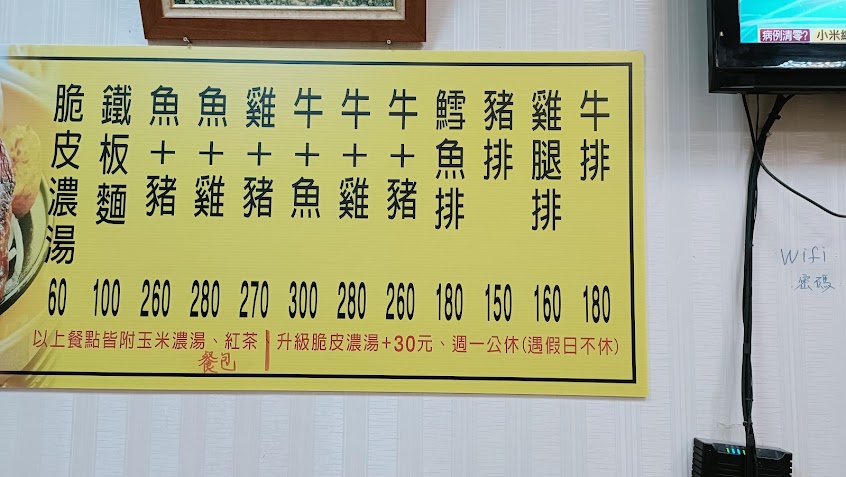 病例清零? 小米
牛排 180
雞腿排 160
豬排 150
鱈魚排 180
牛+豬 260
牛+雞 280
牛+魚 300
雞+豬 270
魚+雞 280
魚+豬 260
鐵板麵 100
脆皮濃湯 60
以上餐點皆附玉米濃湯、紅茶 餐包 | 升級脆皮濃湯+30元、週一公休(遇假日不休)
Wifi
密碼